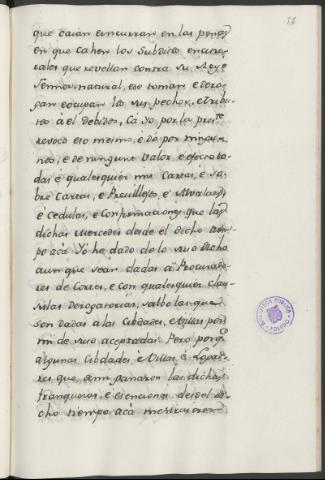 que caian é incurran en las penas
en que cahen los subditos é natu-
rales que revellan contra su Rey é
Señor natural, é so toman é dero-
gan é ocupan los sus pechos, é tribu-
tos á él debidos, Cá Yo por la preste
revoco eso mesmo, é dó por ningu-
nto, é de ningunt valor é efecto to-
das é qualesquier mis Cartas, é so-
bre Cartas, é Previllejos, é Alvalaes,
é cedulas, é confirmaciones que las
dichas mercedes desde el dicho tiem-
po acá Yo hé dado de lo suso dicho
aunque sean dadas á Procurado-
res de Cortes, é con qualesquier Clau-
sulas derogatorias, salbo las que
son dadas á las Cibdades, é Villas por
mi de suso aceptadas. Pero porque
algunas Cibdades é Villas é Loga-
res que ganaron las dichas
franquezas, é esenciones desde el di-
cho tiempo acá mostrasen
BIBLIOTECA PUBLICA
TOLEDO